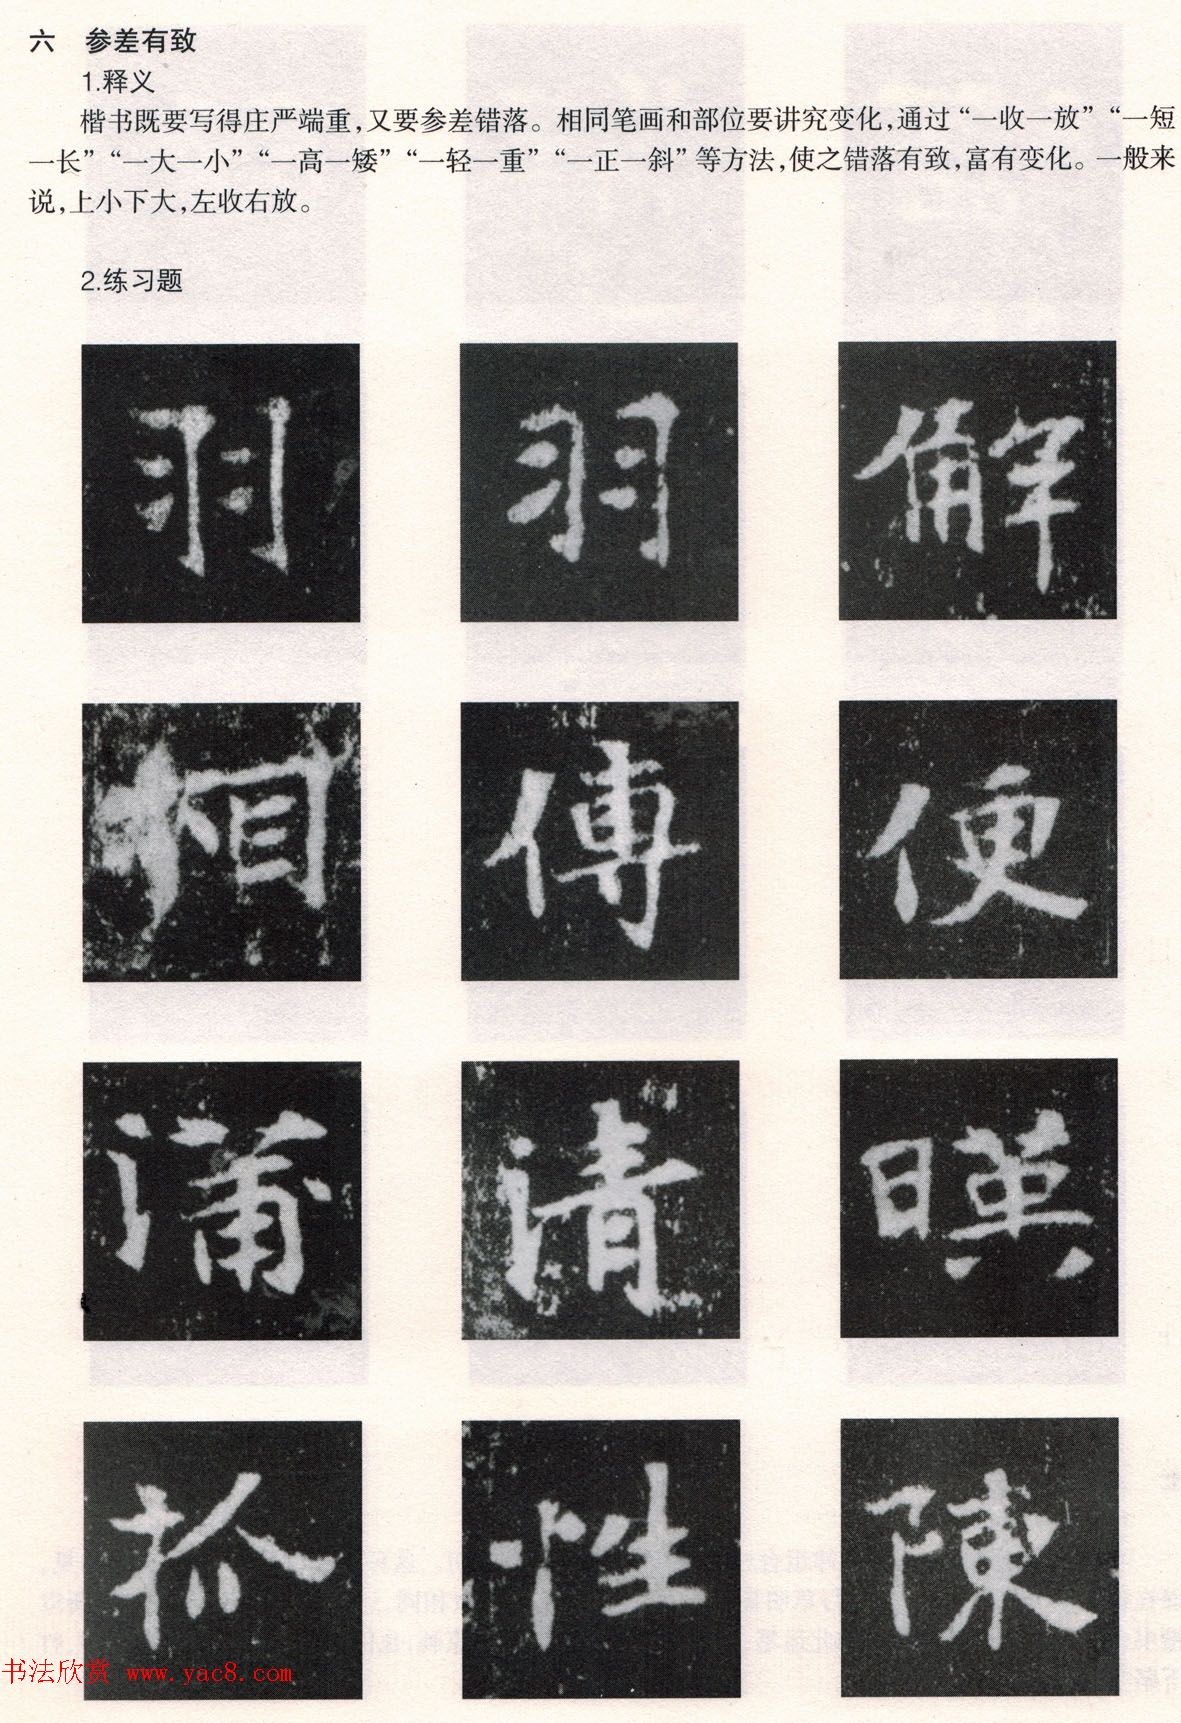 六 参差有致
1.释义
楷书既要写得庄严端重,又要参差错落。相同笔画和部位要讲究变化,通过“一收一放”“一短
一长”“一大一小”“一高一矮”“一轻一重”“一正一斜”等方法,使之错落有致,富有变化。一般来
说,上小下大,左收右放。
2.练习题
羽 羽 解
傅 便
蒲 清 暎
性 陳
书法欣赏 www.yac8.com